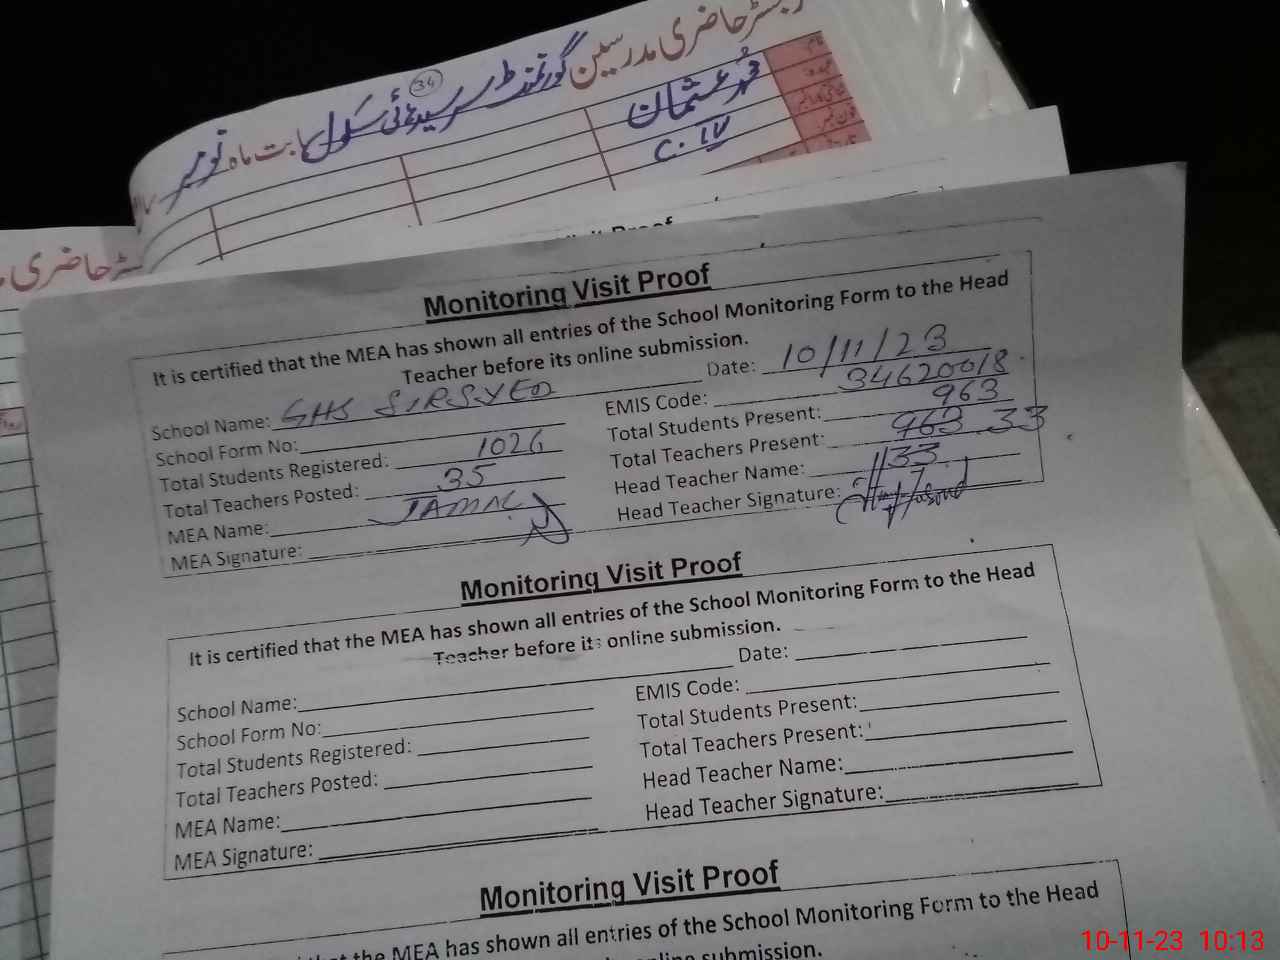 رجسٹر حاضری مدرسین گورنمنٹ سرسید ہائی سکول بابت ماہ نومبر
34
نام
محمد عثمان
عہدہ
C. IV
حاضری
Monitoring Visit Proof
It is certified that the MEA has shown all entries of the School Monitoring Form to the Head
Teacher before its online submission.
School Name: GHS SIRSYED Date: 10/11/23
School Form No: EMIS Code: 34620018
Total Students Registered: 1026 Total Students Present: 963
Total Teachers Posted: 35 Total Teachers Present: 963 33
MEA Name: JAMAL Head Teacher Name: 33
MEA Signature: Head Teacher Signature:
Monitoring Visit Proof
It is certified that the MEA has shown all entries of the School Monitoring Form to the Head
Teacher before its online submission.
School Name: Date:
School Form No: EMIS Code:
Total Students Registered: Total Students Present:
Total Teachers Posted: Total Teachers Present:
MEA Name: Head Teacher Name:
MEA Signature: Head Teacher Signature:
Monitoring Visit Proof
that the MEA has shown all entries of the School Monitoring Form to the Head
online submission.
10-11-23 10:13